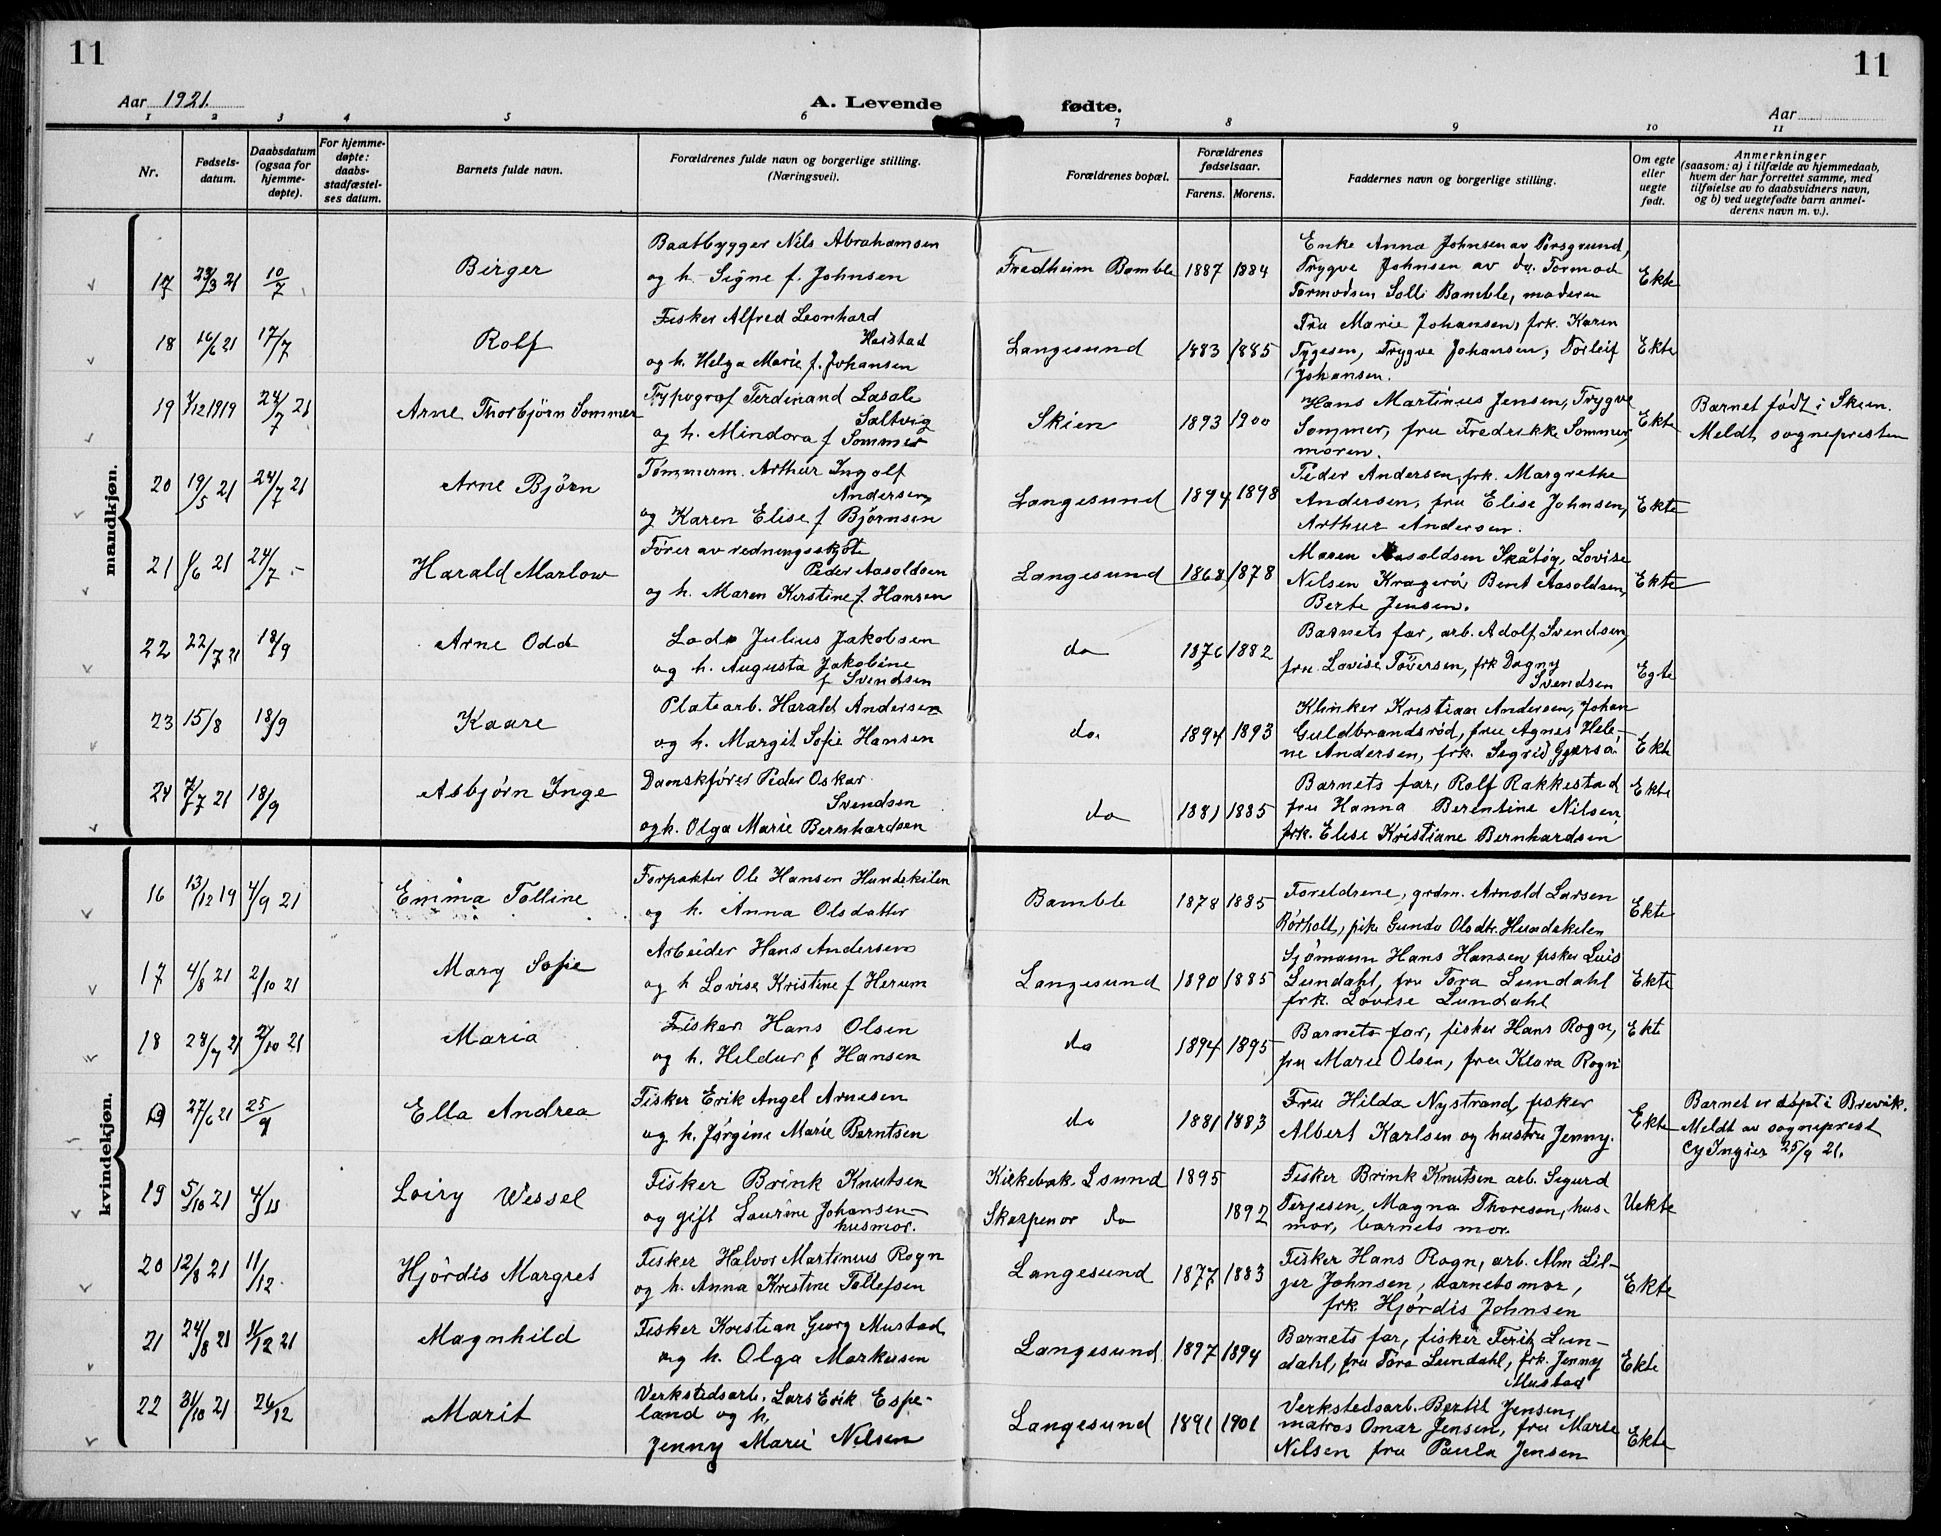 11
11
Aar 1921.
A. Levende fødte.
Aar
1 2 3 4 5 6 7 8 9 10 11
Nr.
Fødsels-
datum.
Daabsdatum
(ogsaa for
hjemme-
døpte).
For hjemme-
døpte:
daabs-
stadfæstel-
ses datum.
Barnets fulde navn.
Forældrenes fulde navn og borgerlige stilling.
(Næringsvei).
Forældrenes bopæl.
Forældrenes
fødselsaar.
Farens. Morens.
Faddernes navn og borgerlige stilling.
Om egte
eller
uegte
født.
Anmerkninger
(saasom: a) i tilfælde av hjemmedaab,
hvem der har forrettet samme, med
tilføielse av to daabsvidners navn,
og b) ved uegtefødte barn anmel-
derens navn m. v.).
mandkjøn.
17 29/3 21 10/7 Birger
Baatbygger Nils Abrahamsen
og h. Signe f. Johnsen
Fredheim Bamble 1887 1884
Enke Anna Johnsen av Porsgrund,
Trygve Johnsen av do. Tormod
Tormodsen Salli Bamble, moderen
Ekte
18 16/6 21 17/7 Rolf
Fisker Alfred Leonhard
Haistad
og h. Helga Marie f. Johansen
Langesund 1883 1885
Fru Marie Johansen, frk. Karen
Tygesen, Trygve Johansen, Torleif
Johansen.
Ekte
19 7/12 1919 24/7 21 Arne Thorbjörn Sommer
Typograf Ferdinand Lasale
Saltvig
og h. Mindora f Sommer
Skien 1893 1900
Hans Martinus Jensen, Trygve
Sommer, fru Fredrikke Sommer,
moren.
Ekte
Barnet født i Skien.
Meldt sognepresten
20 19/5 21 24/7 21 Arne Björn
Tömmerm. Arthur Ingolf
Andersen
og Karen Elise f Bjørnsen
Langesund 1894 1898
Peder Andersen, frk. Margrethe
Andersen, fru Elise Johnsen,
Arthur Andersen.
Ekte
21 1/6 21 24/7 - Harald Marlow
Fører av redningsskøte
Peder Aasoldsen
og h. Maren Kirstine f. Hansen
Langesund 1868 1878
Maren Aasoldsen Skåtøy, Lovise
Nilsen Kragerö Bent Aasoldsen,
Berte Jensen.
Ekte
22 22/7 21 18/9 Arne Odd
Lods Julius Jakobsen
og h. Augusta Jakobine
f Svendsen
do 1876 1882
Barnets far, arb. Adolf Svendsen,
fru Lovise Töversen, frk Dagny
Svendsen
Egte
23 15/8 18/9 Kaare
Platearb. Harald Andersen
og h. Margit Sofie Hansen
do. 1894 1893
Klinker Kristian Andersen, Johan
Guldbrandsröd, fru Agnes Hele-
ne Andersen, frk. Sigrid
Ekte
24 7/7 21 18/9 Asbjørn Inge
Damskfører Peder Oskar
Svendsen
og h. Olga Marie Bernhardsen
do 1881 1885
Barnets far, Rolf Rakkestad
fru Hanna Berentine Nilsen,
frk. Elise Kristiane Bernhardsen
Ekte
kvindekjøn.
16 13/12 19 4/9 21 Emma Tolline
Forpakter Ole Hansen Hundekilen
og h. Anna Olsdatter
Bamble 1878 1885
Foreldrene, grdm. Arnold Larsen
Rörholt, pike Gunda Olsdtr. Hundekilen
Ekte
17 4/8 21 2/10 21 Mary Sofie
Arbeider Hans Andersen
og h Lovise Kristine f Herum
Langesund 1890 1885
Sjømann Hans Hansen, fisker Luis
Lundahl, fru Tora Lundahl
frk. Lovise Lundahl
Ekte
18 28/7 21 2/10 21 Maria
Fisker Hans Olsen
og h. Hildur f Hansen
do 1894 1895
Barnets far, fisker Hans Rogn,
fru Marie Olsen, fru Klara Rogn
Ekt
27/6 21 25/9 Ella Andrea
Fisker Erik Angel Arnesen
og h. Jørgine Marie Berntsen
do 1881 1883
Fru Hilda Nystrand, fisker
Albert Karlsen og hustru Jenny.
Ekte
Barnet er døpt i Brevik.
Meldt av sogneprest
Cy Ingier 25/9 21.
19 5/10 21 4/11 Loiry Wessel
Fisker Brink Knutsen
og gift Laurine Johansen
husmor.
Kirkebak. Lsund 1895
Skarpenor do 1892
Fisker Brink Knutsen arb. Sigurd
Terjesen, Magna Thoresen, hus-
mor, barnets mor.
Uekte
20 12/8 21 11/12. Hjördis Margret
Fisker Halvor Martinius Rogn
og h. Anna Kristine Tollefsen
Langesund 1877 1883
Fisker Hans Rogn, arb. Alm Lil-
jer Johnsen, barnets mor,
frk Hjördis Johnsen
Ekte
21 24/8 21 11/12 21 Magnhild
Fisker Kristian Georg Mustad
og h. Olga Markusen
Langesund 1897 1894
Barnets far, fisker Ferit Lun-
dahl, fru Tora Lundahl, frk. Jenny
Mustad
Ekte
22 31/10 21 26/12 Marit
Verkstedsarb. Lars Erik Espe-
land og h.
Jenny Marie Nilsen
Langesund 1891 1901
Verkstedsarb. Bertil Jensen,
matros Omar Jensen, fru Marie
Nilsen fru Paula Jensen
Ekte